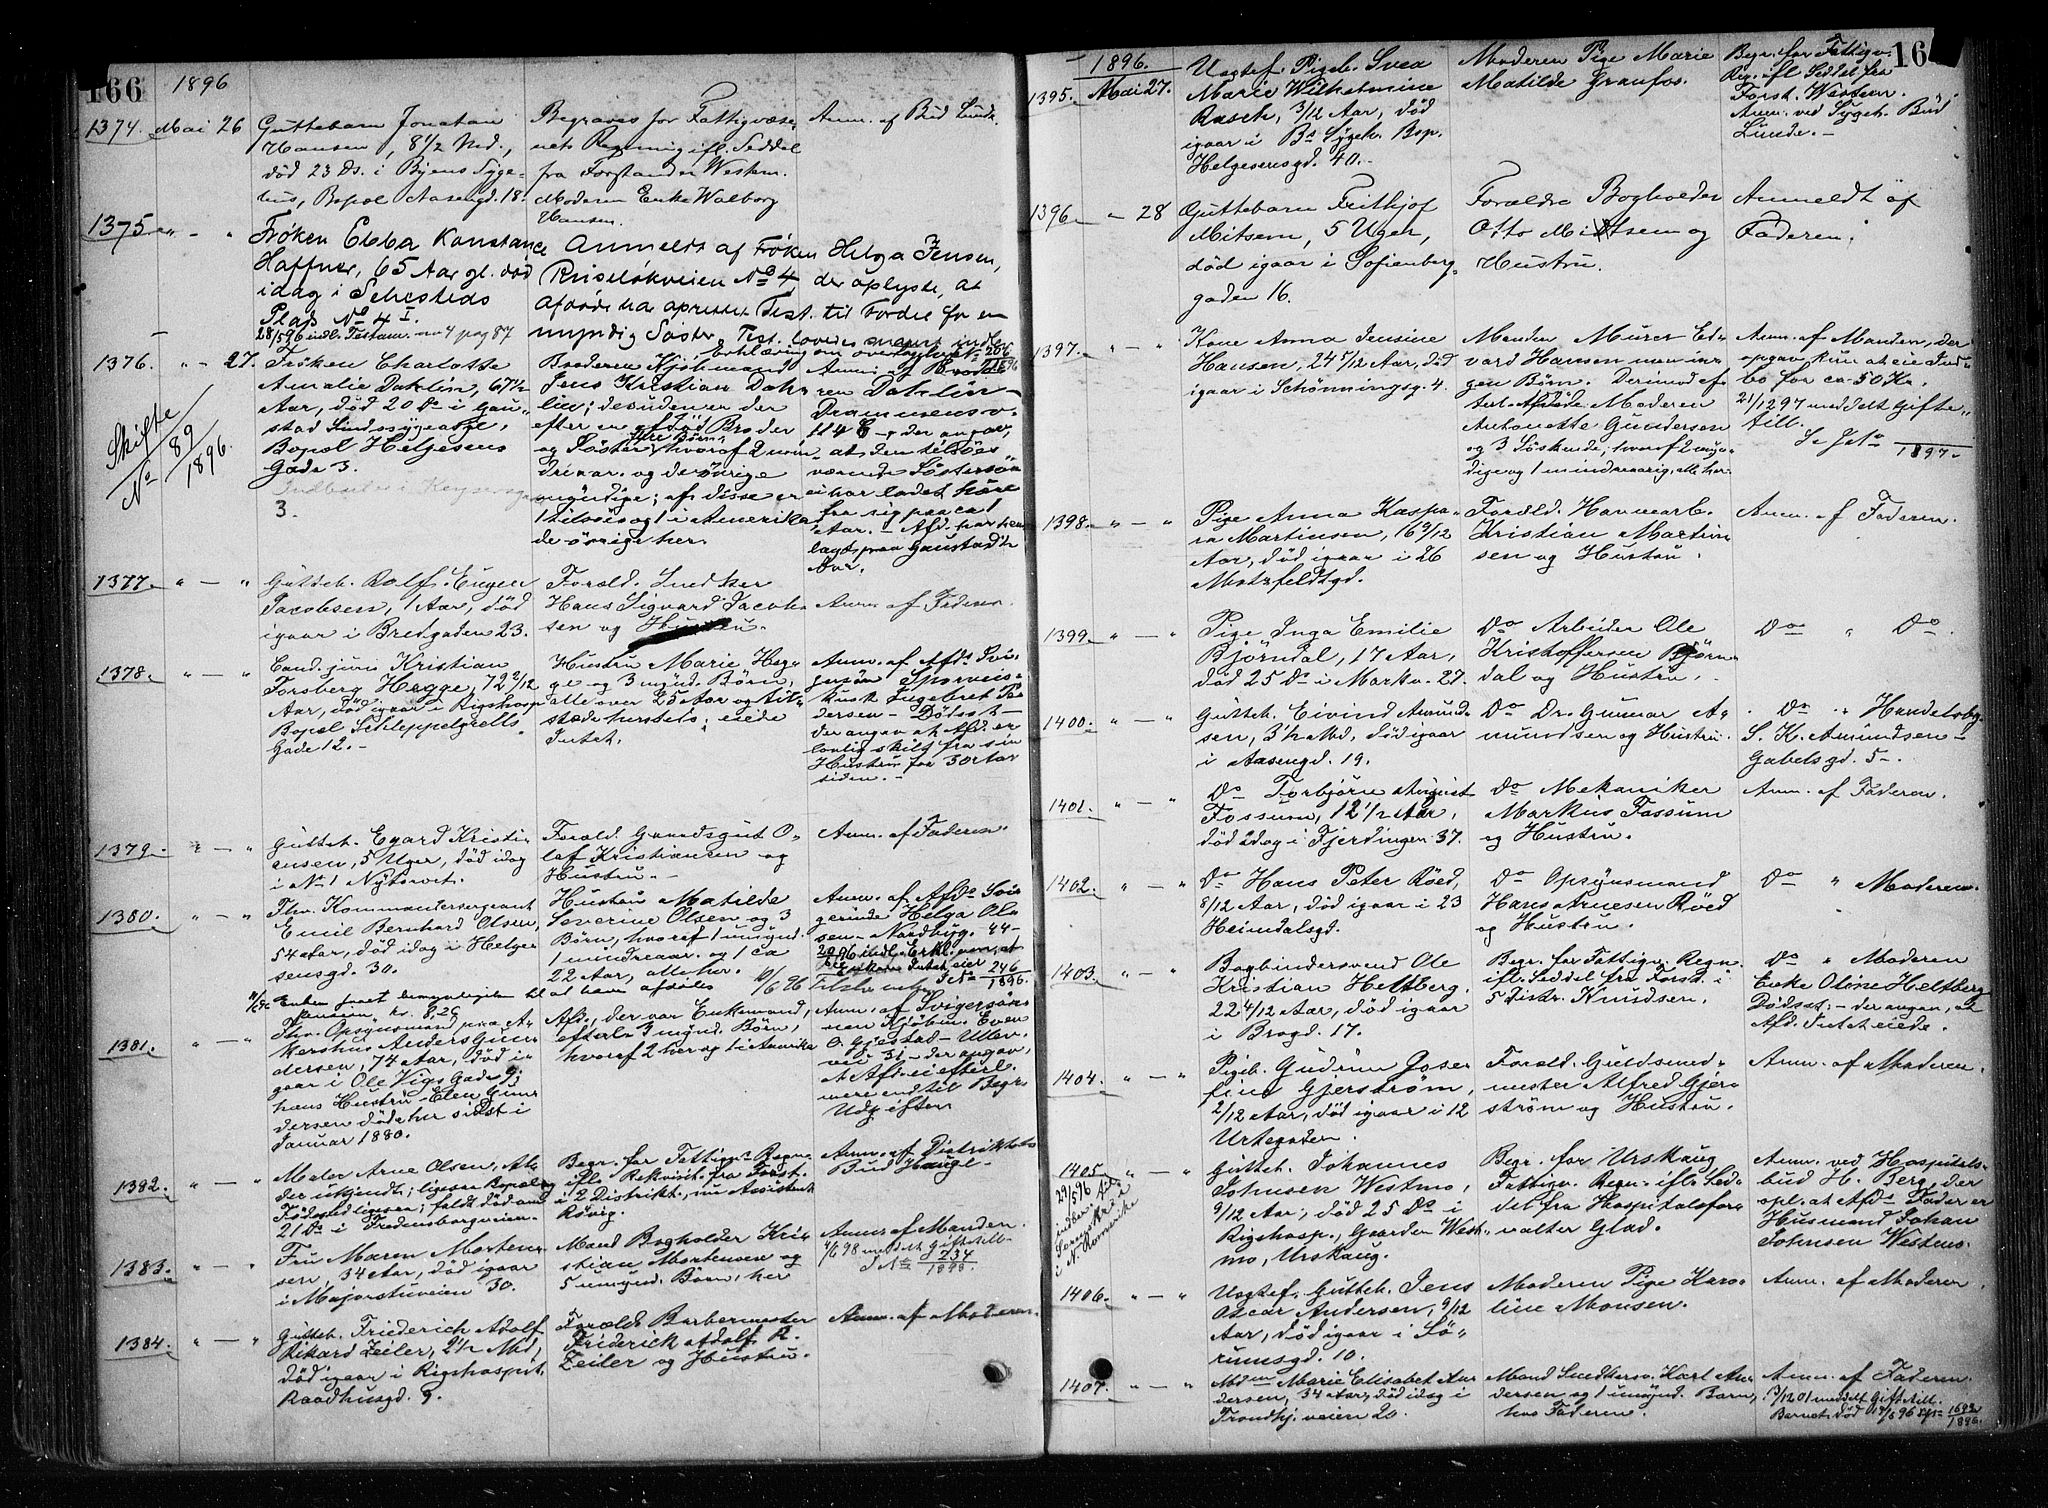 166
1896
1374. Mai 26
Guttebarn Jonatan
Hansen, 8 1/2 Md.,
død 23 Ds. i Byens Syge-
hus, Bopæl Aasengd. 18.
Begraves for Fattigvæse-
nets Regning ifl. Seddel
fra Forstander Western.
Moderen Enke Walborg
Hansen.
Anm. af Bud Lunde.
1375. " - "
Frøken Ebba Konstance
Haffner, 65 Aar gl. død
idag i Sehesteds
Plads No 4 I.
28/5 96 indl. Testam. no 4 pag 87
Anmeldt af Frøken Helga Jensen,
Ruseløkveien No 4, der oplyste, at
afdøde har oprettet Test. til Fordel for en
myndig Søster. Test. lovedes snarest indlev.
1376. " - 27.
Skifte
No 89/1896.
Frøken Charlotte
Amalie Dahlin, 67 1/2
Aar, død 20 Ds i Gau-
stad Sindssygeasyl,
Bopæl Helgesens
Gade 3.
3.
Broderen Kjøbmand
Jens Kristian Dah-
lin; desuden er der
efter en afdød Broder
og Søster tre Børn, hvoraf 2 min-
dreaar. og de øvrige
myndige; af disse er
1 tilsøes og 1 i Amerika
de øvrige her.
Anm. af Brode-
ren Dahlin
Drammensv.
114 E - der angav,
at den tilsøes
værende Søstersøn
ei har ladet høre
fra sig paa ca 1
Aar. - Afd. har hen-
lagt paa Gaustad i
Aar.
1377. " - "
Gutteb. Rolf Eugen
Jacobsen, 1 Aar, død
igaar i Bredgaden 23.
Foræld. Snedker
Hans Sigvard Jacob-
sen og Hustru.
Anm. af Faderen.
1378. " - "
Cand. juris Kristian
Forsberg Hegge, 72 2/12
Aar, død igaar i Rigshosp.
Bopæl Schleppelgrells
Gade 12. -
Hustru Marie Heg-
ge og 3 mynd. Børn,
alle over 25 Aar og til-
stede herstets; eiede
Intet.
Anm. af Afds Svi-
gersøn Sporveis-
kusk Ingebret Pe-
dersen - Dødsst. -
der angav at Afd. er
lovlig skilt fra sin
Hustru for 30 Aar
siden. -
1379. " - "
Gutteb. Egard Kristi-
ansen, 5 Uger, død idag
i No 1 Nytorvet.
Foræld. Grandsgut O-
laf Kristiansen og
Hustru. -
Anm. af Faderen.
1380. " - "
Fhv. Kommandersergeant
Emil Bernhard Olsen,
54 Aar, død idag i Helge-
sensgd. 30.
Hustru Matilde
Severine Olsen og 3
Børn, hvoraf 1 umynd.
1 mindreaar. og 1 ca
22 Aar, alle her.
Anm. af Afds Svi-
gerinde Helga Ol-
sen - Nordbyg. 44 -
J No 246/1896.
1381. " - "
Fhv. Opsynsmand paa A-
kershus Anders Gun-
dersen, 74 Aar, død i-
gaar i Ole Vigs Gade 9;
hans Hustru Elen Gun-
dersen døde her sidst i
Januar 1880.
Afd., der var Enkemand,
efterl. 3 mynd. Børn,
hvoraf 2 her og 1 i Amerika
Anm. af Svigersøn-
nen Kjøbm. Even
O. Gjestad - Ullev.
vei 31 - der angav,
at Afd. ei efterl.
mere end til Begr.
Udg. iften
1382. " - "
Maler Arne Olsen, Al-
der ukjendt; ligesaa Bopæl og
Fødested; faldt død om
21 Ds i Fredensborgveien.
Begr. for Fattigvs Regn.
ifl. Rekvisit. fra Forst.
i 2 Distrikt, nu Assistent
Røvig.
Anm. af Distriktets
Bud Hauge -
1383. " - "
Fru Maren Morten-
sen, 34 Aar, død igaar
i Majorstuveien 30.
Mand Bogholder Kri-
stian Mortensen og
5 umynd. Børn, her
Anm. af Manden.
4/6 98 meddelt Giftetill.
J No 234/1898
1384. " - "
Gutteb. Friederich Adolf
Rikard Zeiler, 2 1/2 Md.,
død igaar i Rigshospit.
Raadhusgd. 9.
Foræld. Barbermester
Friderick Adolf R.
Zeiler og Hustru.
Anm. af Moderen.
16
1896.
1395. Mai 27.
Uægtef. Pigeb. Svea
Marie Wilhelmine
Rasch, 3/12 Aar, død
igaar i Bs Sygeh. Bop.
Helgesensgd. 40. -
Moderen Pige Marie
Matilde Granfos.
Begr. for Fattigv.
Reg. ifl. Seddel fra
Forst. Western.
Anm. ved Sygeh. Bud
Lunde. -
1396. " - 28
Guttebarn Frithjof
Mitsem, 5 Uger,
død igaar i Sofienberg-
gaden 16.
Forældre Bogholder
Otto Mitsem og
Hustru.
Anmeldt af
Faderen.
1397. " - "
Kone Anna Jensine
Hansen, 24 5/12 Aar, død
igaar i Schønningsg. 4.
Manden Murer Ed-
vard Hansen men in-
gen Børn. Derimod ef-
terl. Afdøde Moderen
Antonette Gundersen
og 3 Søskende, hvoraf 2 myn-
dige og 1 mindreaarig, alle her.
Anm. af Manden, der
opgav kun at eie Ind-
bo for ca. 50 Kr.
21/12 97 meddelt Gifte-
till.
1897.
1398. " - "
Pige Anna Kaspa-
ra Martinsen, 16 9/12
Aar, død igaar i 26
Motzfeldtsgd.
Foræld. Havnearb.
Kristian Martin-
sen og Hustru.
Anm. af Faderen.
1399. " - "
Pige Inga Emilie
Bjørndal, 17 Aar,
død 25 Ds i Markv. 27.
Do Arbeider Ole
Kristoffersen Bjørn-
dal og Hustru.
Do " Do.
1400. " - "
Gutteb. Eivind Amund-
sen, 3 1/2 Md., død igaar
i Aasengd. 19.
Do Dr. Gunnar A-
mundsen og Hustru.
Do " Handelsbg.
S. K. Amundsen -
Gabelsgd. 5 -.
1401. " - "
Do Torbjørn August
Fossum, 12 1/2 Aar,
død idag i Fjerdingen 37.
Do Mekaniker
Markus Fossum
og Hustru.
Anm. af Faderen.
1402. " - "
Do Hans Peter Røed,
8/12 Aar, død igaar i 23
Heimdalsgd.
Do Opsynsmand
Hans Arnesen Røed
og Hustru.
Do " Moderen.
1403. " - "
Bogbindersvend Ole
Kristian Heltberg,
22 4/12 Aar, død igaar
i Brogd. 17.
Begr. for Fattigv. Regn.
ifl. Seddel fra Forst. i
5 Distr. Knudsen.
Do " Moderen
Enke Oline Heltberg
Dødsst. - der angav, at
Afd. Intet eiede.
1404. " - "
Pigeb. Gudrun Jose-
fine Gjerstrøm,
2/12 Aar, død igaar i 12
Urtegaden.
Foræld. Guldsmed-
mester Alfred Gjer-
strøm og Hustru.
Anm. af Moderen.
1405. " - "
29/5 96
Gutteb. Johannes
Johnsen Westmo,
9/12 Aar, død 25 Ds i
Rigshosp., Gaarden West-
mo, Urskaug.
Begr. for Urskaug
Fattigv. Regn. ifl. Sed-
del fra Hospitalsfor-
valter Glad.
Anm. ved Hospitals-
bud H. Berg, der
opl. at Afds Fader er
Husmand Johan
Johnsen Westmo.
1406. " - "
Uægtef. Gutteb. Jens
Oscar Andersen, 9/12
Aar, død igaar i Sø-
rumsgd. 10.
Moderen Pige Karo-
line Monsen.
Anm. af Moderen
1407. " - "
Mdm Marie Elisabet An-
dersen, 34 Aar, død idag i
Trondhj. veien 20.
Mand Snedkersv. Karl An-
dersen og 1 umynd. Barn,
hos Faderen.
Anm. af Faderen.
meddelt Giftetill.
Barnet død